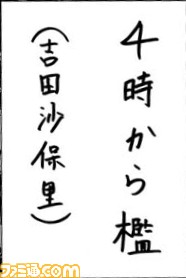 4時から檻
(吉田沙保里)
ファミ通.com